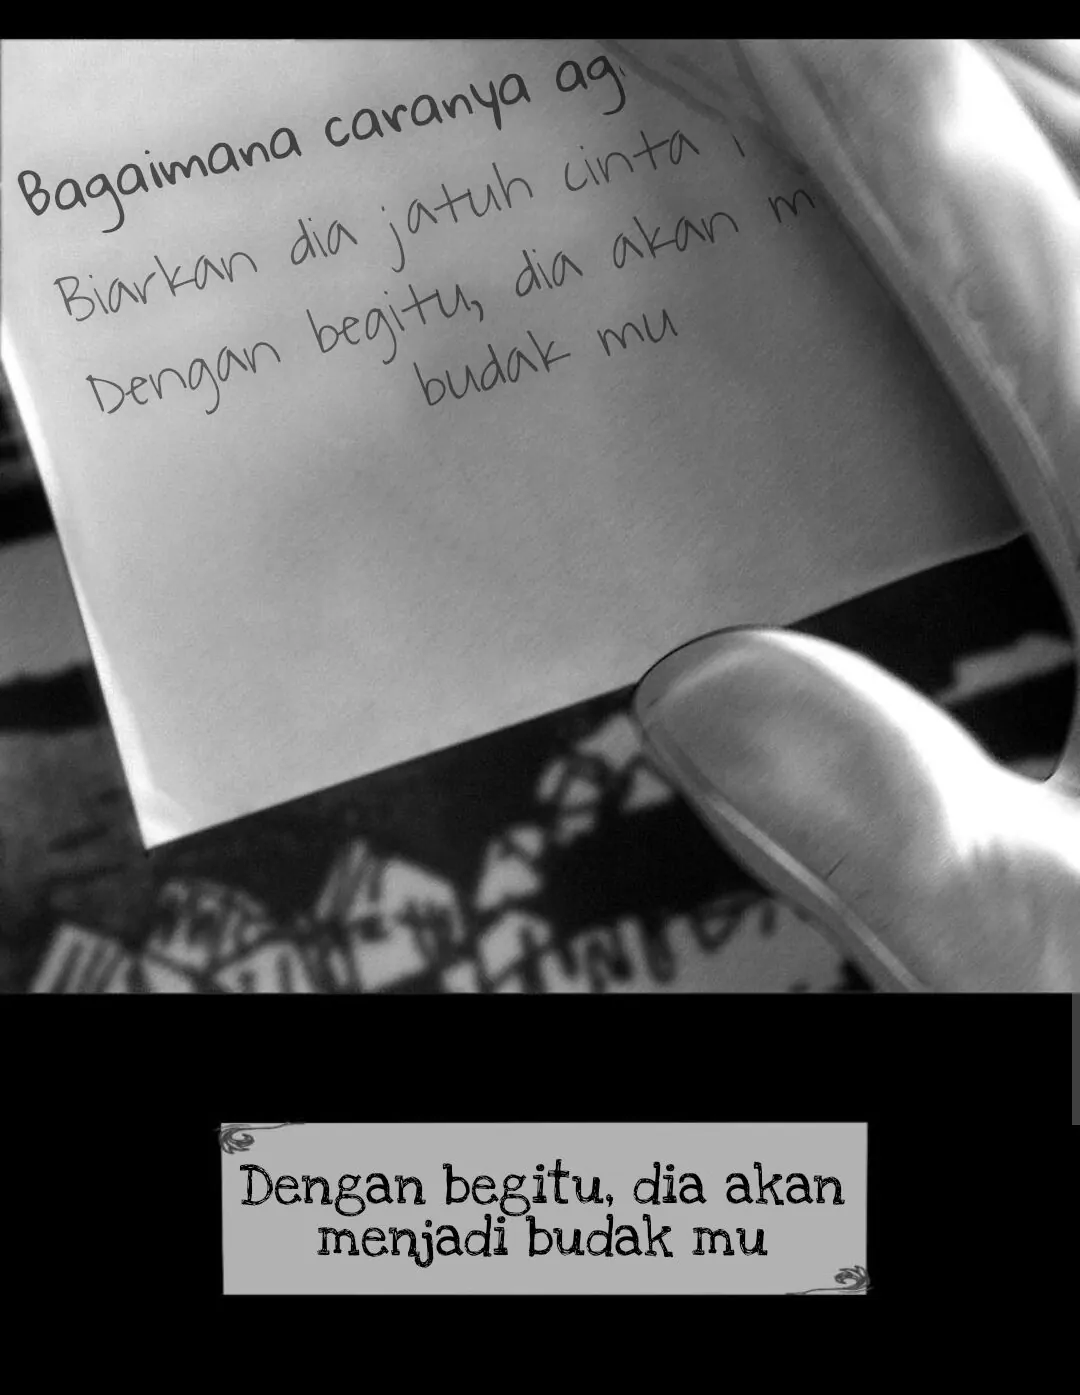 Bagaimana caranya
Biarkan dia jatuh cinta
Dengan begitu, dia akan
budak mu
Dengan begitu, dia akan
menjadi budak mu